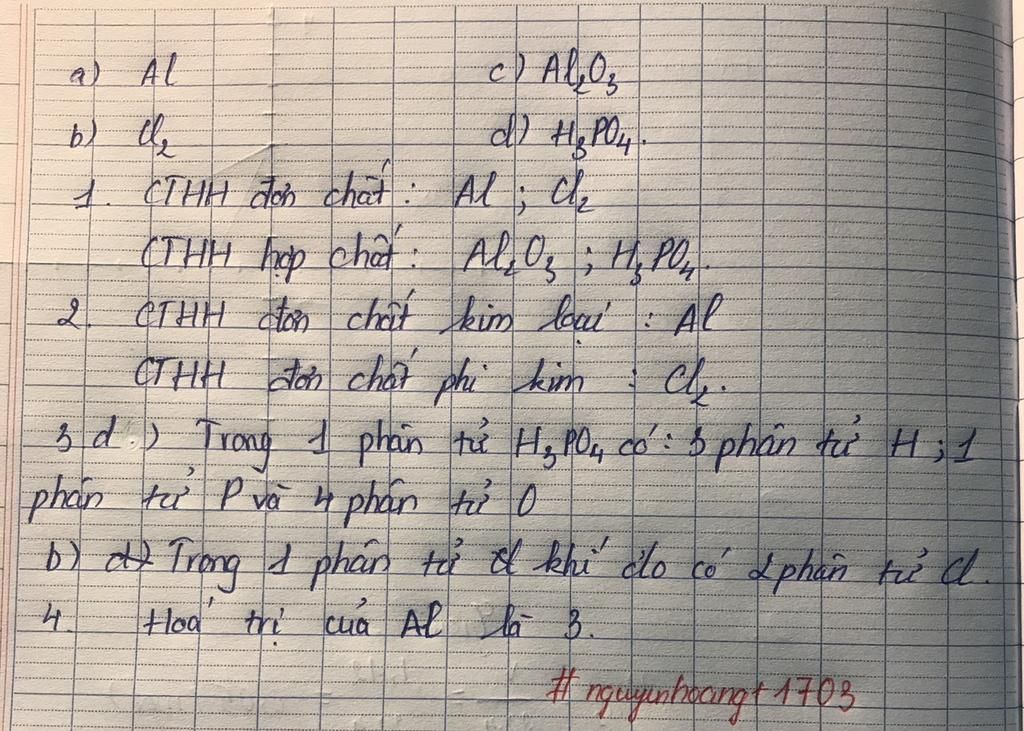 a) Al c) Al₂O₃
b) Cl₂ d) H₃PO₄.
1. CTHH đơn chất : Al ; Cl₂
CTHH hợp chất : Al₂O₃ ; H₃PO₄.
2. CTHH đơn chất kim loại : Al
CTHH đơn chất phi kim : Cl₂.
3 d.) Trong 1 phân tử H₃PO₄ có : 3 phân tử H ; 1
phân tử P và 4 phân tử O
b) Trong 1 phân tử khí clo có 2 phân tử Cl.
4. Hoá trị của Al là 3.
# nguyunhoangt1703